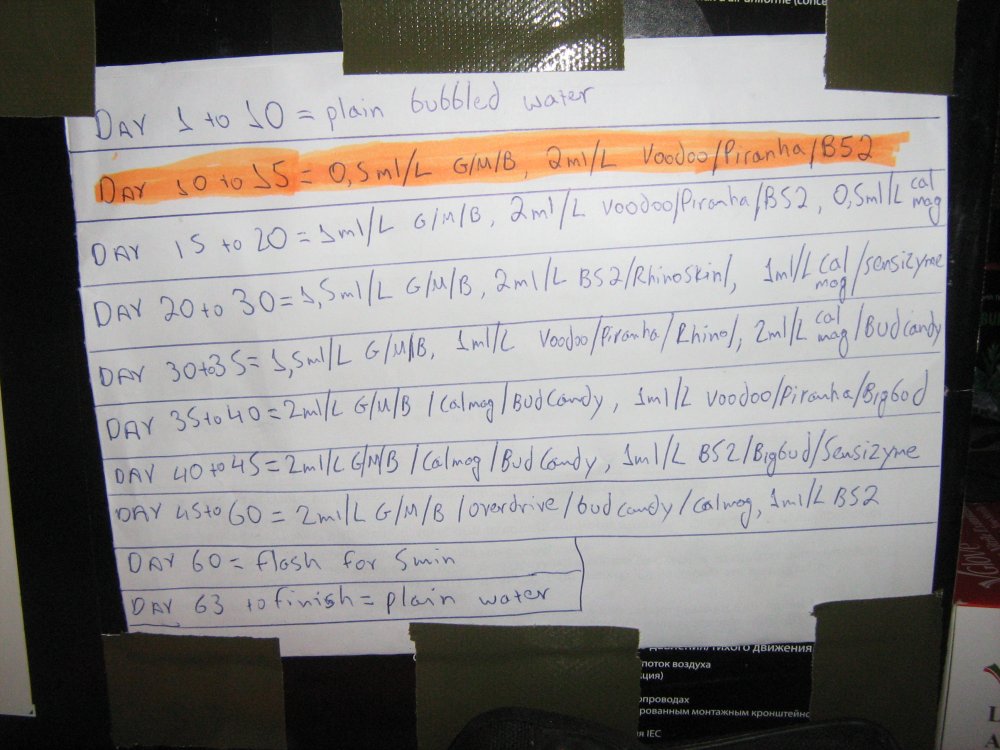 DAY 1 to 10 = plain bubbled water
DAY 10 to 15 = 0,5ml/L G/M/B, 2ml/L Voodoo/Piranha/B52
DAY 15 to 20 = 1ml/L G/M/B, 2ml/L Voodoo/Piranha/B52, 0,5ml/L cal mag
DAY 20 to 30 = 1,5ml/L G/M/B, 2ml/L B52/Rhinoskin/, 1ml/L cal mag/sensizyme
DAY 30to35 = 1,5ml/L G/M/B, 1ml/L Voodoo/Piranha/Rhino/, 2ml/L cal mag/Budcandy
DAY 35to 40 = 2ml/L G/M/B /Calmag/BudCandy, 1ml/L Voodoo/Piranha/Bigbud
DAY 40to45 = 2ml/L G/M/B /Calmag/BudCandy, 1ml/L B52/Bigbud/Sensizyme
DAY 45to 60 = 2ml/L G/M/B /overdrive/budcandy/Calmag, 1ml/L B52
DAY 60 = flash for 5min
DAY 63 to finish = plain water
тихого движения
поток воздуха
монтажным
IEC